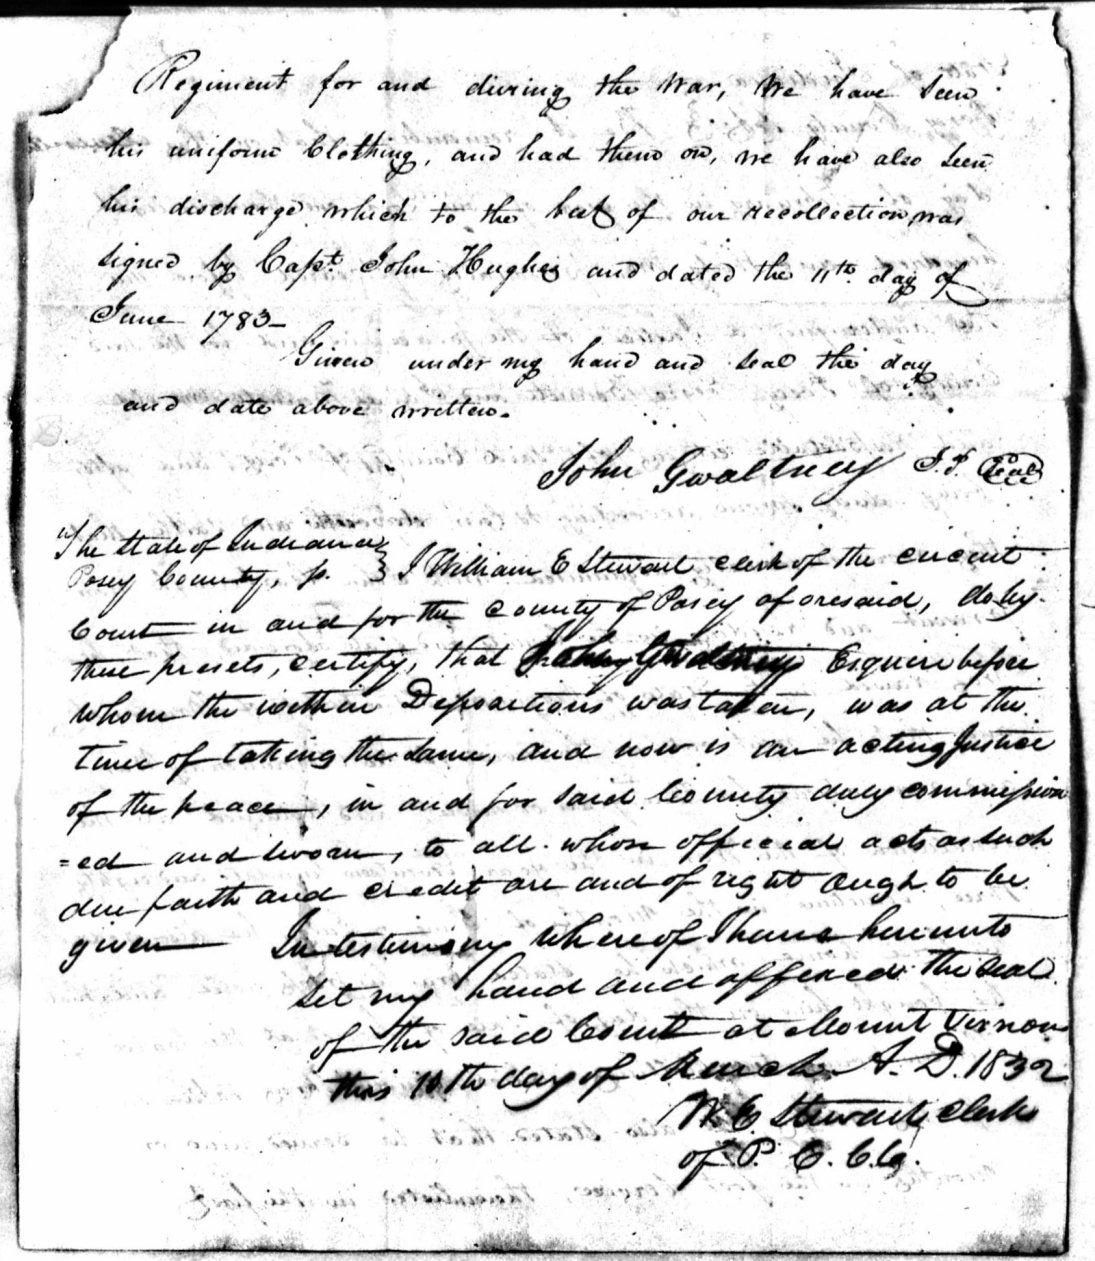 Regiment for and during the War, We have seen
his uniform Clothing, and had them on, we have also seen
his discharge which to the best of our recollection, was
signed by Capt. John Hughes and dated the 11th. day of
June 1783—
Given under my hand and seal the day
and date above written.
John Gwaltney J.P. Seal
The State of Indiana
Posey County, ss. } I William E Stewart clerk of the circuit
Court in and for the County of Posey aforesaid, do by
these presets, certify, that John Gwaltney Esquire before
whom the within Depositions was taken, was at the
time of taking the same, and now is an acting Justice
of the peace, in and for said County duly commission
=ed and sworn, to all whose official acts as such
due faith and credit are and of right ought to be
given In testimony whereof I have hereunto
set my hand and affixed the seal
of the said Court at Mount Vernon
this 10th day of March A.D. 1832
W. E. Stewart Clerk
of P. C. C.